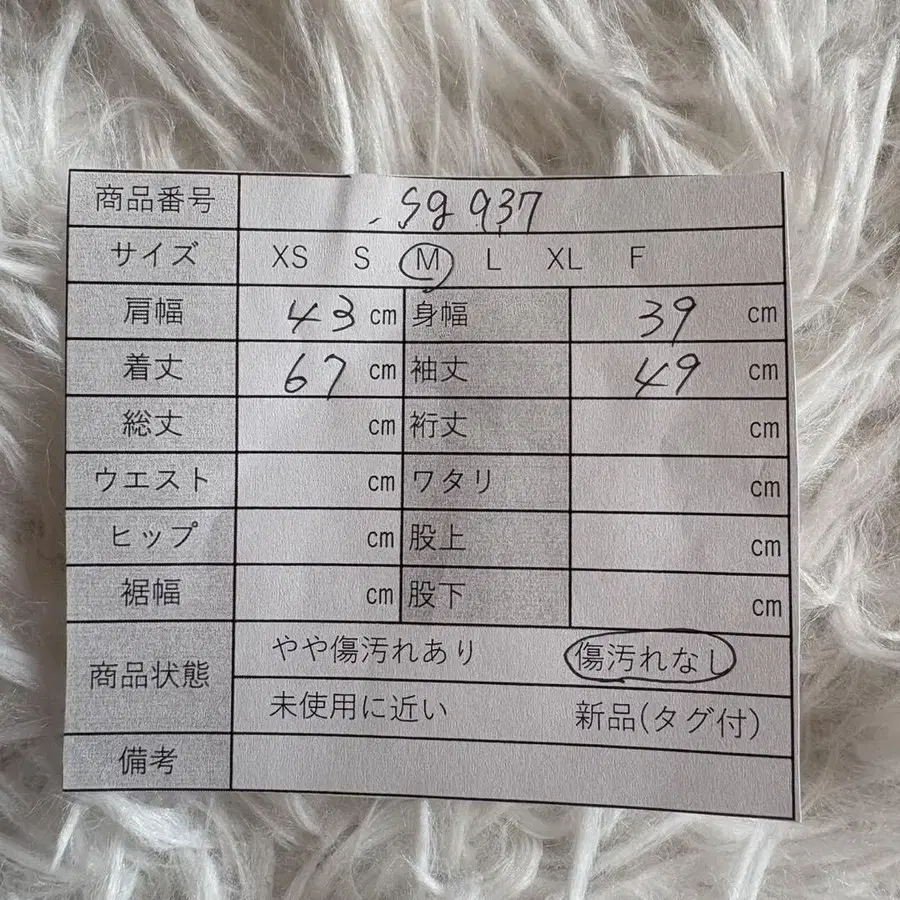 商品番号 sg 937
サイズ XS S M L XL F
肩幅 43 cm 身幅 39 cm
着丈 67 cm 袖丈 49 cm
総丈 cm 裄丈 cm
ウエスト cm ワタリ cm
ヒップ cm 股上 cm
裾幅 cm 股下 cm
商品状態 やや傷汚れあり 傷汚れなし
未使用に近い 新品(タグ付)
備考